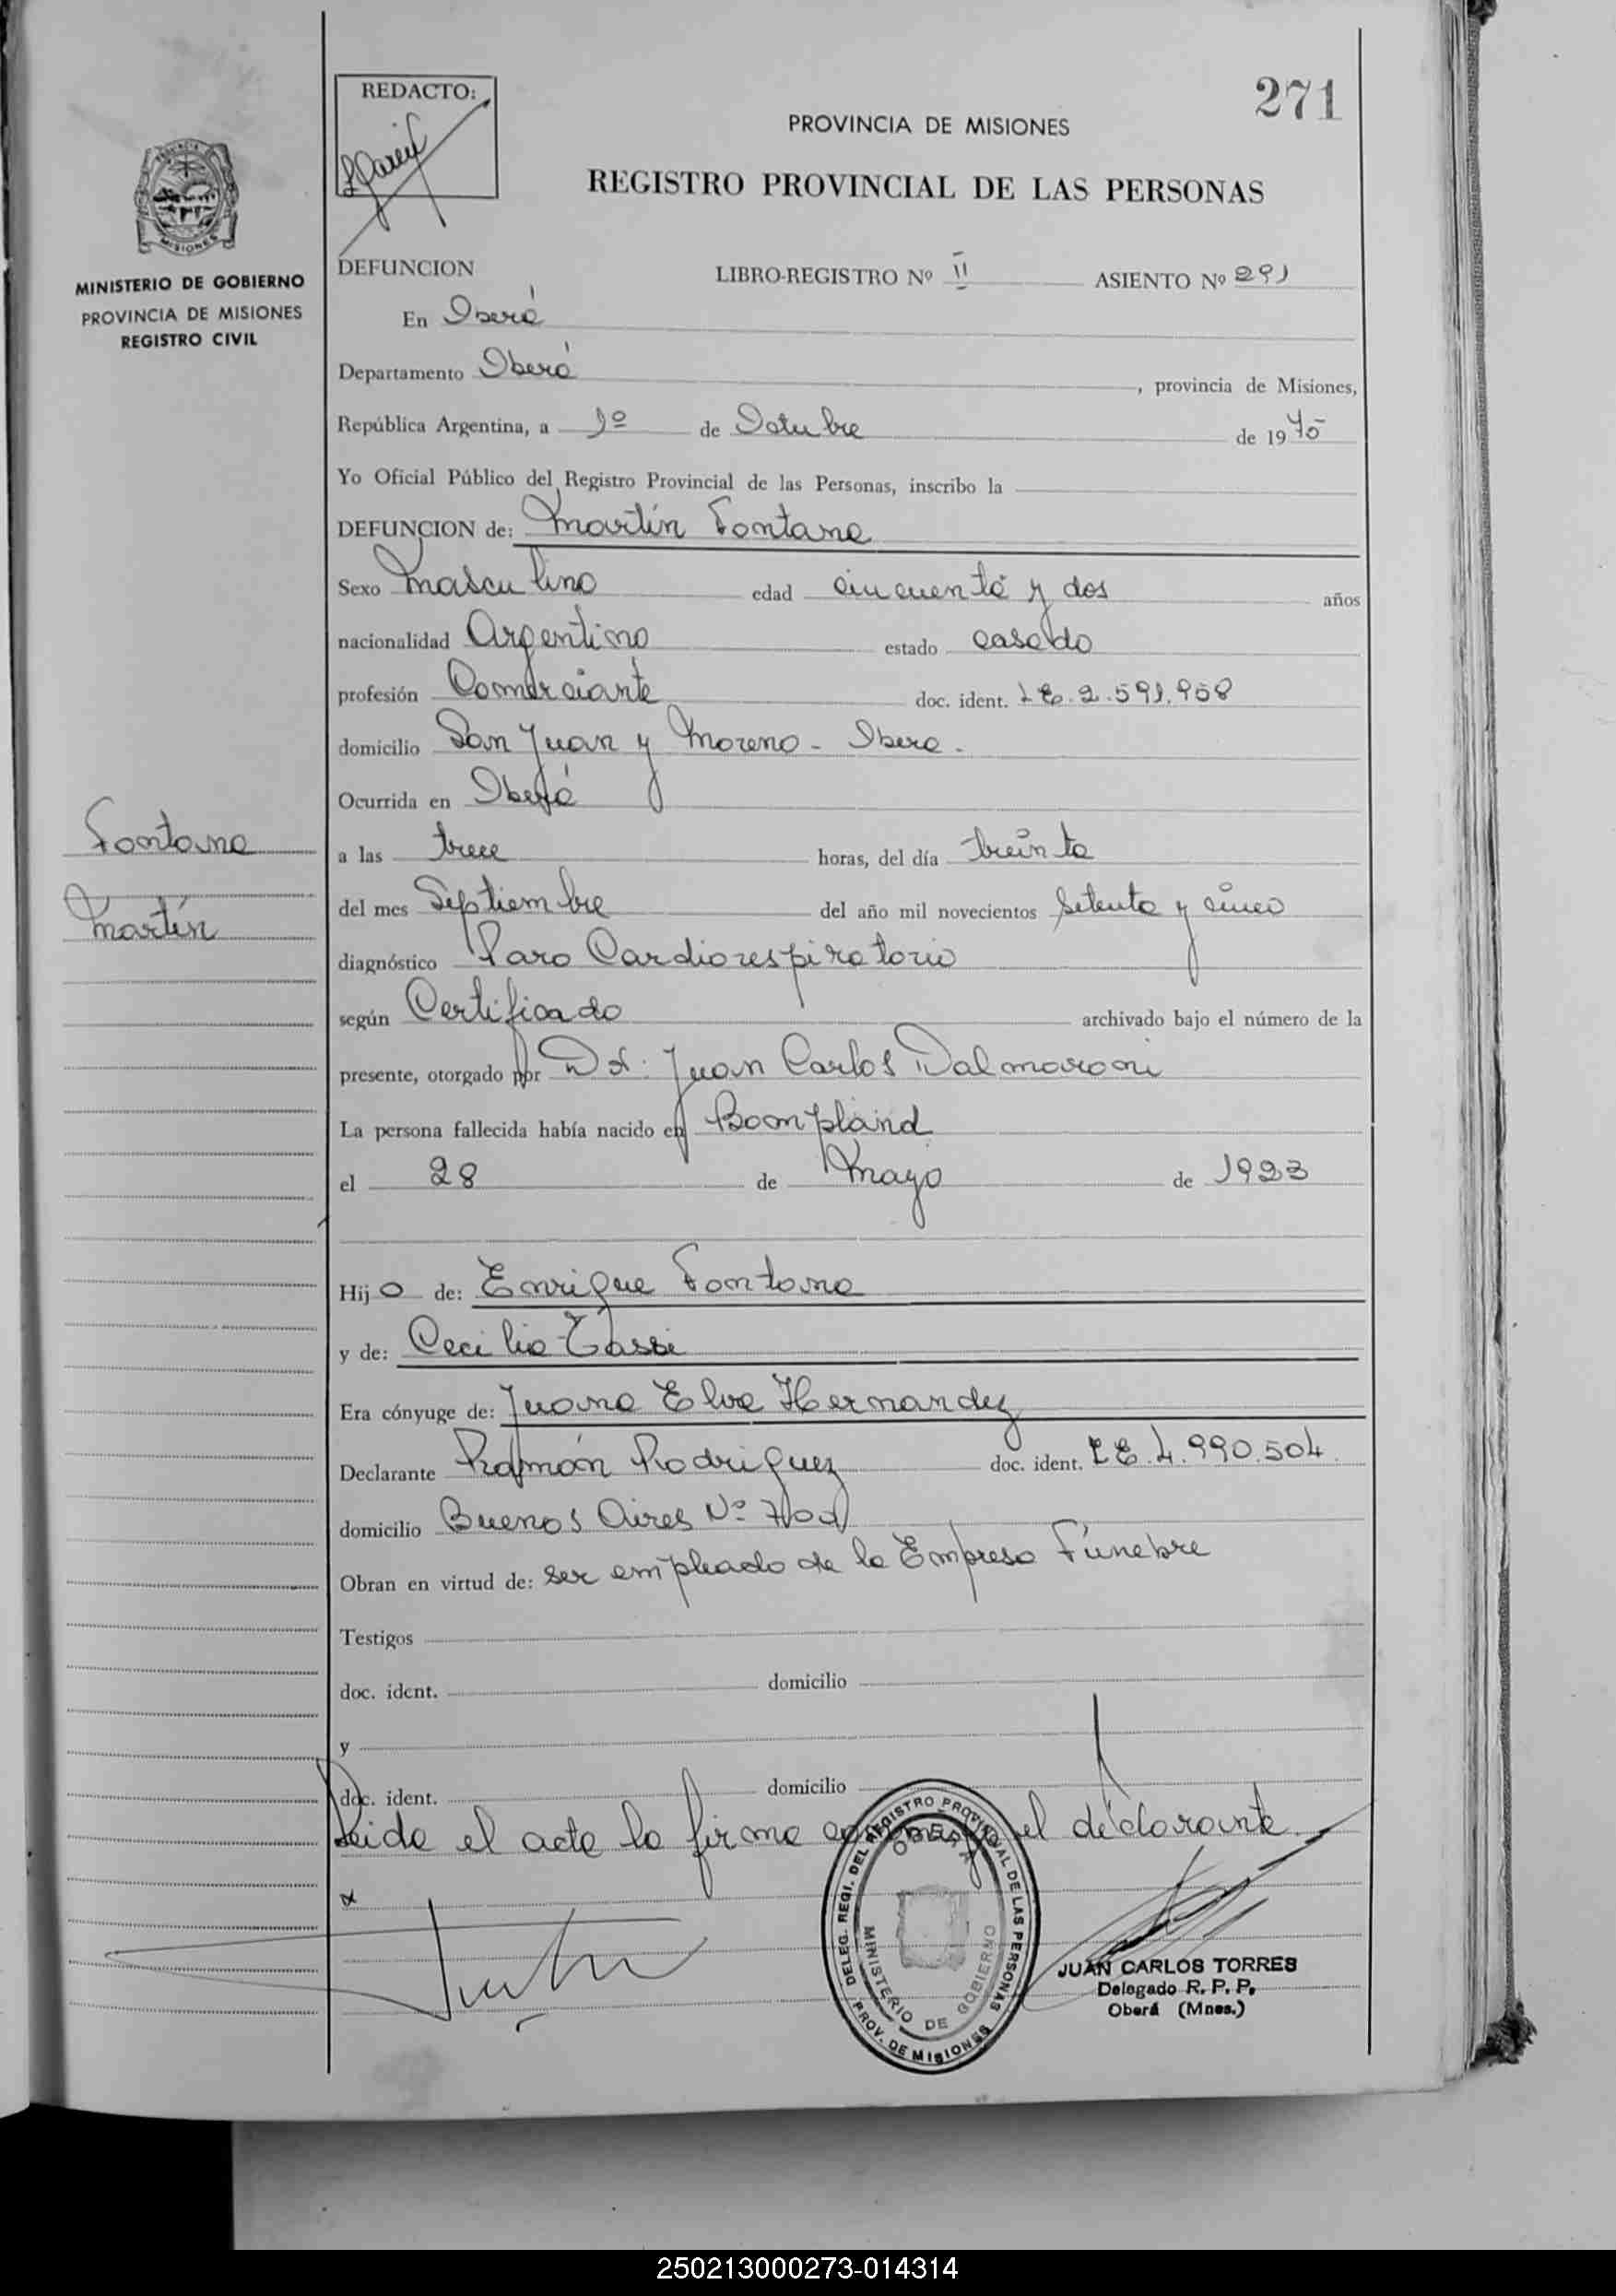 271
REDACTO:
PROVINCIA DE MISIONES
REGISTRO PROVINCIAL DE LAS PERSONAS
MINISTERIO DE GOBIERNO
PROVINCIA DE MISIONES
REGISTRO CIVIL
DEFUNCION LIBRO-REGISTRO Nº II ASIENTO Nº 291
En Oberá
Departamento Oberá, provincia de Misiones,
República Argentina, a 1º de Octubre de 1975
Yo Oficial Público del Registro Provincial de las Personas, inscribo la
DEFUNCION de: Martín Fontana
Sexo Masculino edad cincuenta y dos años
nacionalidad Argentino estado casado
profesión Comerciante doc. ident. LE.2.591.958
domicilio San Juan y Moreno - Obera -
Ocurrida en Oberá
Fontana
Martín
a las trece horas, del día treinta
del mes Septiembre del año mil novecientos setenta y cinco
diagnóstico Paro Cardiorespiratorio
según Certificado archivado bajo el número de la
presente, otorgado por Dr. Juan Carlos Dalmaroni
La persona fallecida había nacido en Bompland
el 28 de Mayo de 1923
Hijo de: Enrique Fontana
y de: Cecilia Tassi
Era cónyuge de: Juana Elva Hernandez
Declarante Ramón Rodriguez doc. ident. LE.4.990.504
domicilio Buenos Aires Nº
Obran en virtud de: ser empleado de la Empresa Fúnebre
Testigos
doc. ident. domicilio
y
doc. ident. domicilio
Leida el acta la firma conmigo el declarante
DELEG. REGI. DEL REGISTRO PROVINCIAL DE LAS PERSONAS
OBERA
MINISTERIO DE GOBIERNO
PROV. DE MISIONES
JUAN CARLOS TORRES
Delegado R. P. P.
Oberá (Mnes.)
250213000273-014314